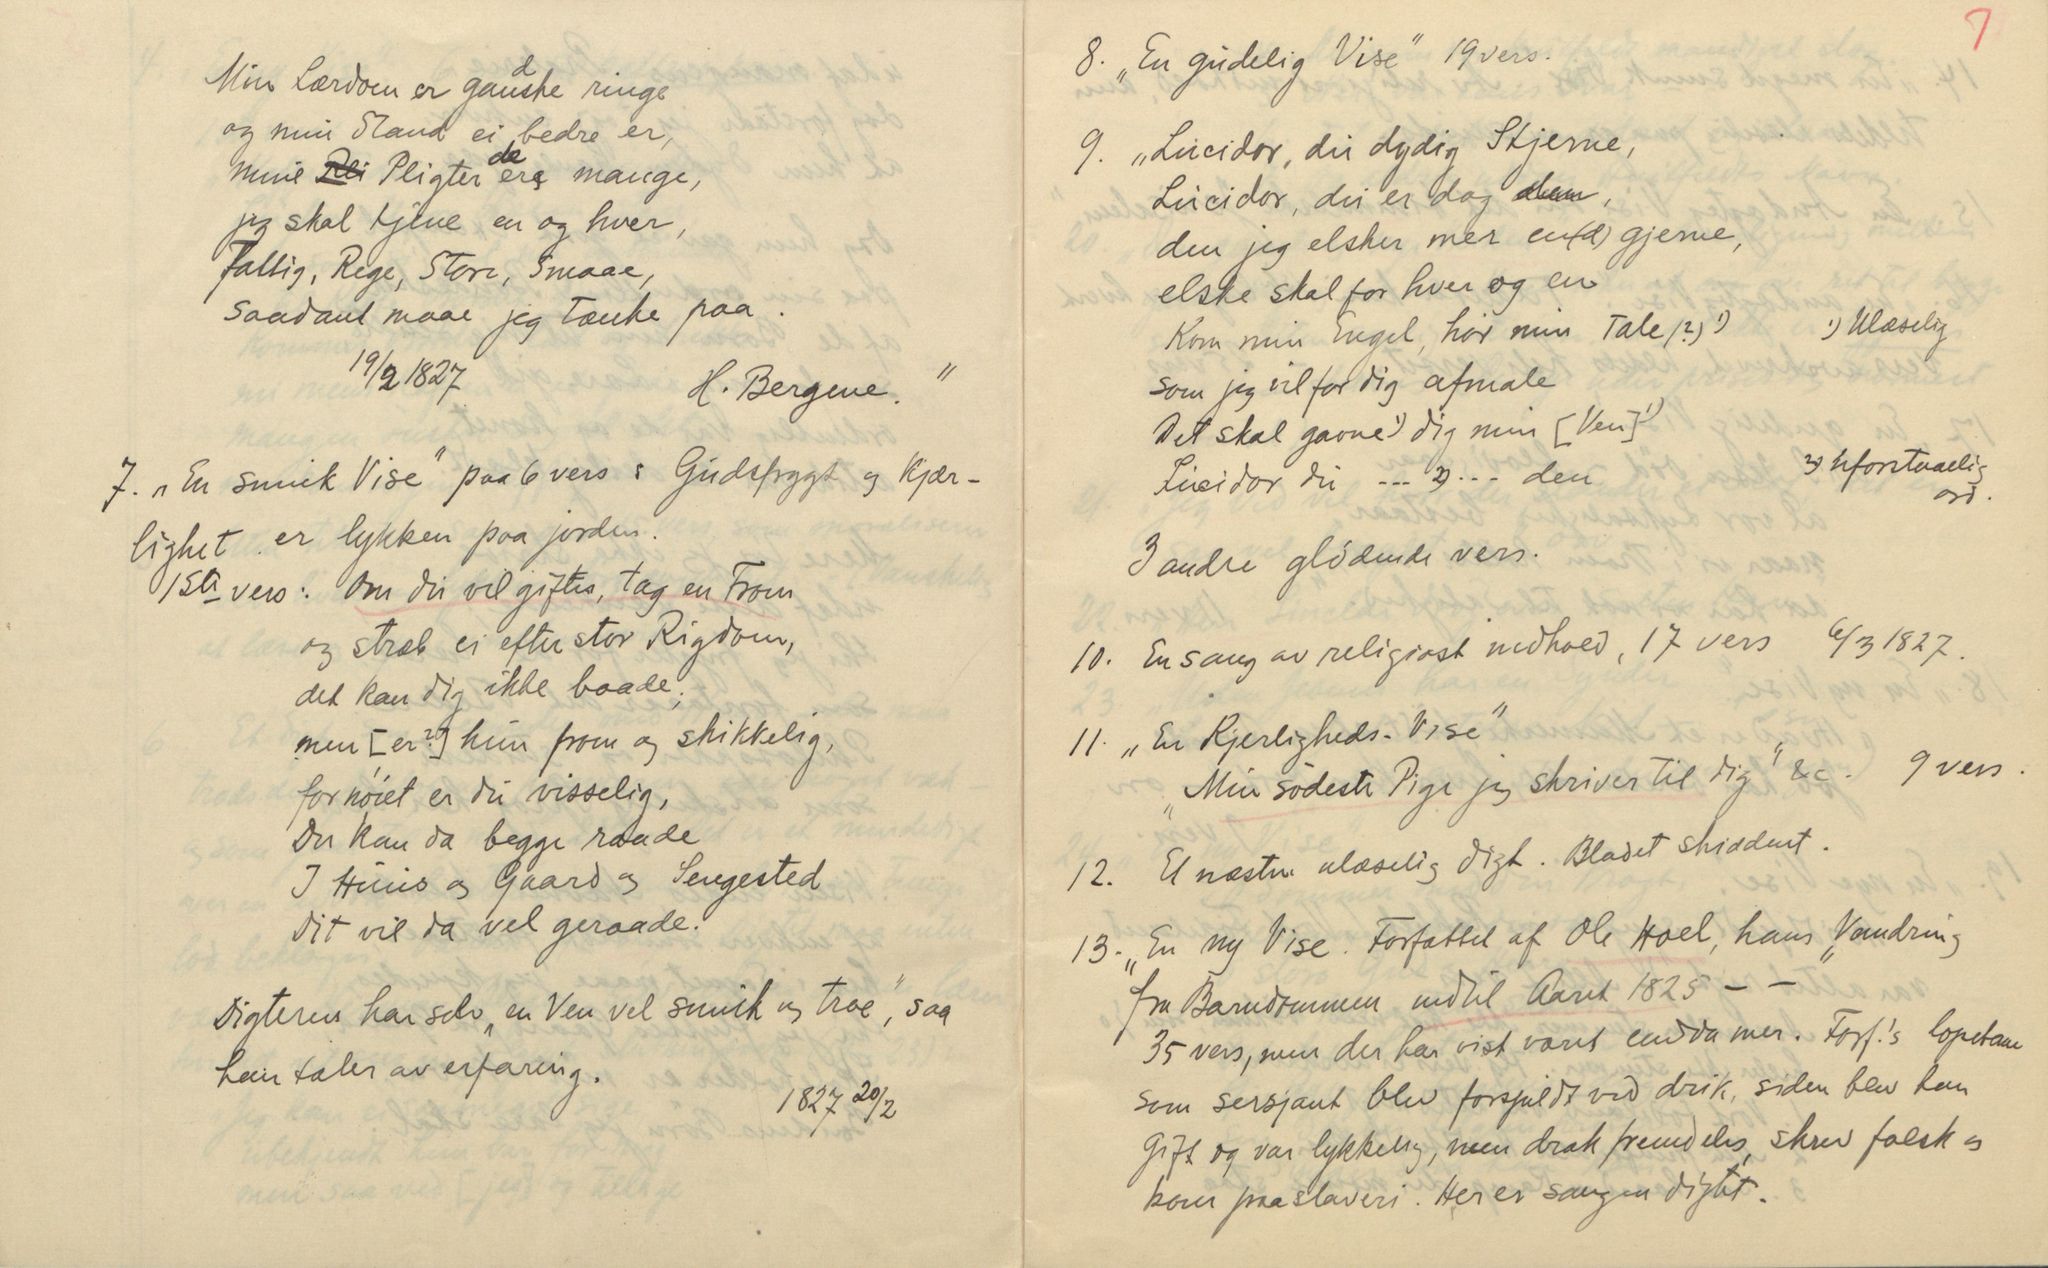 Min Lærdom er ganske ringe
og min Stand ei bedre er,
mine Pligter ere mange,
jeg skal tjene en og hver,
Fattig, Rege, Store, Smaae,
saadant maae jeg tænke paa.
19/2 1827 H. Bergene."
7. „En smuk Vise" paa 6 vers: Gudsfrygt og Kjær-
lighet er lykken paa jorden.
1ste vers: Om du vil giftes, tag en From
og stræb ei efter stor Rigdom,
det kan dig ikke baade;
men [er?] hun from og skikkelig,
fornöiet er du visselig,
Du kan da begge raade
I Huus og Gaard og Sengested
Dit vil da vel geraade.
Digteren har selv „en Ven vel smuk og troe", saa
han taler av erfaring.
1827 20/2
7
8. „En gudelig Vise" 19 vers.
9. „Lucidor, du dydig Stjerne,
Lucidor, du er dog den,
den jeg elsker mer en(d) gjerne,
elske skal for hver og en
Kom min Engel, hör min Tale (?) 1) 1) Ulæselig
som jeg vil for dig afmale
Det skal gavne 1) dig min [Ven] 1)
Lucidor du ... 2) ... den 2) Uforstaaelig
ord.
3 andre glödende vers.
10. En sang av religiøst indhold, 17 vers 6/3 1827.
11. „En Kjerligheds-Vise"
„Min södeste Pige jeg skriver til dig" &c. 9 vers.
12. Et næsten ulæselig digt. Bladet skiddent.
13. „En ny Vise. Forfattet af Ole Hoel, hans „Vandring
fra Barndommen indtil Aaret 1825 – –
35 vers, men der har vist været endda mer. Forf.'s løpebane
som sersjant blev forspildt ved drik, siden blev han
gift og var lykkelig, men drak fremdeles, skrev falsk og
kom paa slaveri. Her er sangen digtet.